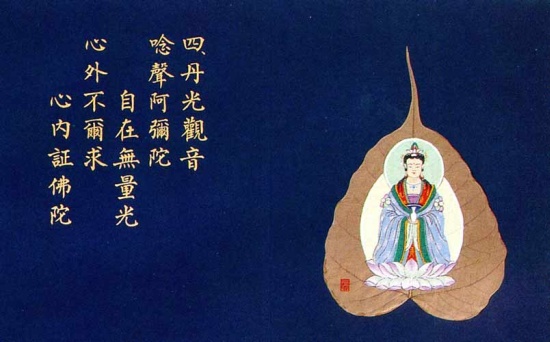 四、丹光觀音
唸聲阿彌陀
自在無量光
心外不爾求
心內証佛陀